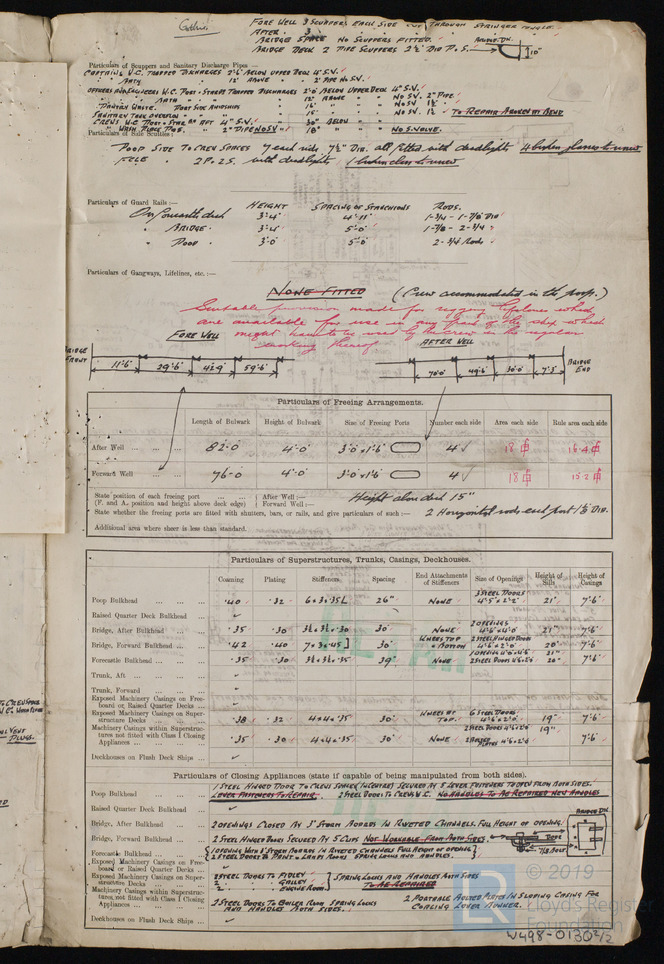 FORE WELL 3 SCUPPERS EACH SIDE CUT THROUGH STRINGER ANGLE.
AFTER " 3
BRIDGE SPACE NO SCUPPERS FITTED.
BRIDGE DECK 2 PIPE SCUPPERS 2½" DIA P.S.
10"
Particulars of Scuppers and Sanitary Discharge Pipes —
CAPTAINS W.C. TRAPPED DISCHARGES 2'6" BELOW UPPER DECK 4" S.V.
" BATH 12" ABOVE " 2" PIPE NO S.V.
OFFICERS AND ENGINEERS W.C. PORT & STARBD TRAPPED DISCHARGES 2'0" BELOW UPPER DECK 4" S.V.
" BATH " " 12" ABOVE " NO S.V. 2" PIPE
PANTRY WASTE. PORT SIDE AMIDSHIPS 16" " NO S.V. 1½"
SANITARY TANK OVERFLOW " 15" " NO S.V. 1½" TO REPAIR BROKEN AT BEND
CREWS W.C. PORT & STARBD AFT 4" S.V. 30" BELOW "
" WASH PLACE POOP. 2" PIPE NO S.V. 10" " NO S. VALVE.
Particulars of Side Scuttles:—
POOP SIDE TO CREW SPACES 7 each side 7½" DIA. all fitted with deadlights 4 broken glasses to renew
2 P. & 2 S. with deadlights, 1 broken glass to renew
Particulars of Guard Rails :—
HEIGHT SPACING OF STANCHIONS RODS.
On forecastle deck 3'-4" 4'-11" 1-3/4 - 1-7/8 DIA
" BRIDGE " 3'-4" 5'-0" 1-7/8 - 2-3/4 "
" POOP " 3'-0" 5'-0" 2-3/4 Rods
Particulars of Gangways, Lifelines, etc. :—
NONE FITTED (Crew accommodated in the poop.)
Suitable provision made for rigging lifelines which
are available for use in any part of the ship which
might have to be used by the crew in the regular
working thereof
FORE WELL AFTER WELL
BRIDGE FRONT 11'6" 29'6" 42'9" 59'6" 70'0" 49'6" 30'0" 7'3" BRIDGE END
Particulars of Freeing Arrangements.
Length of Bulwark Height of Bulwark Size of Freeing Ports Number each side Area each side Rule area each side
After Well ... ... ... 82'0" 4'0" 3'0" x 1'6" 4 18 16.4
Forward Well ... ... 76'0" 4'0" 3'0" x 1'6" 4 18 15.2
State position of each freeing port ... ... ... After Well :— Height above deck 15"
(F. and A. position and height above deck edge) Forward Well :—
State whether the freeing ports are fitted with shutters, bars, or rails, and give particulars of such :— 2 Horizontal rods each port 1⅛ DIA.
Additional area where sheer is less than standard.
Particulars of Superstructures, Trunks, Casings, Deckhouses.
Coaming Plating Stiffeners Spacing End Attachments of Stiffeners Size of Openings Height of Sills Height of Casings
Poop Bulkhead ... ... ... .40 .32 6 x 3 x .35 L 26" NONE 3 STEEL DOORS 4'5" x 2'2" 21" 7'6"
Raised Quarter Deck Bulkhead ...
Bridge, After Bulkhead ... ... .35 .30 3½ x 3½ x .30 30" NONE 2 OPENINGS 4'6" x 4'0" 21" 7'6"
Bridge, Forward Bulkhead ... ... .42 .40 7 x 3 x .45 ] 30" WHEELS TOP & BOTTOM 2 STEEL HINGED DOORS 4'6" x 2'0" 20" 7'6"
Forecastle Bulkhead ... ... ... .35 .30 3½ x 3½ x .35 39" NONE 1 OPENING 4'6" x 4'6" 21" 2 STEEL DOORS 4'6" x 2'0" 20" 7'6"
Trunk, Aft ... ... ...
Trunk, Forward ... ... ...
Exposed Machinery Casings on Freeboard or Raised Quarter Decks ...
Exposed Machinery Casings on Superstructure Decks ... ... .38 .32 4 x 4 x .35 30" WHEELS AT TOP. 6 STEEL DOORS 4'6" x 2'0" 19" 7'6"
Machinery Casings within Superstructures not fitted with Class I Closing Appliances ... ... .35 .30 4 x 4 x .35 30" NONE 2 STEEL DOORS 4'6" x 2'0" 19" 2 BOLTED PLATES 4'6" x 2'0" 7'6"
Deckhouses on Flush Deck Ships ...
Particulars of Closing Appliances (state if capable of being manipulated from both sides).
Poop Bulkhead ... ... ... 1 STEEL HINGED DOOR TO CREW SPACE (IN CENTRE) SECURED BY 5 LEVER FASTENERS TO OPEN FROM BOTH SIDES.
LEVER FASTENERS TO REPAIR. 2 STEEL DOORS TO CREWS W.C. NO HANDLES TO BE REPAIRED NEW HANDLES
Raised Quarter Deck Bulkhead ...
Bridge, After Bulkhead ... ... 2 OPENINGS CLOSED BY 3" STORM BOARDS IN RIVETED CHANNELS. FULL HEIGHT OF OPENING.
Bridge, Forward Bulkhead ... ... 2 STEEL HINGED DOORS SECURED BY 5 CLIPS NOT WORKABLE FROM BOTH SIDES. DOOR 7/8 BOLT
Forecastle Bulkhead ... ... 1 OPENING WITH 3" STORM BOARDS IN RIVETED CHANNELS FULL HEIGHT OF OPENING
2 STEEL DOORS TO PAINT & LAMPS ROOMS SPRING LOCKS AND HANDLES.
Exposed Machinery Casings on Freeboard or Raised Quarter Decks ...
Exposed Machinery Casings on Superstructure Decks ... 2 STEEL DOORS TO FIDLEY
2 " " GALLEY
2 " " ENGINE ROOM SPRING LOCKS AND HANDLES BOTH SIDES
TO BE REPAIRED
Machinery Casings within Superstructures, not fitted with Class I Closing Appliances ... 2 STEEL DOORS TO BOILER ROOM SPRING LOCKS AND HANDLES BOTH SIDES. 2 PORTABLE BOLTED PLATES IN SLOPING CASING FOR COALING LOWER BUNKER.
Deckhouses on Flush Deck Ships ...
© 2019
Lloyd's Register
Foundation
W498-0130 2/2